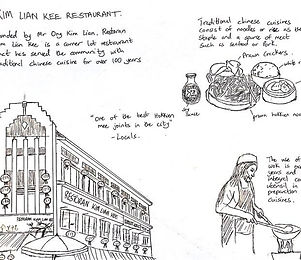 KIM LIAN KEE RESTAURANT.
Founded by Mr Ong Kim Lian, Restoran
Kim Lian Kee is a corner lot restaurant
that has served the community with
traditional chinese cuisine for over 100 years
Traditional chinese cuisines
consist of noodles or rise as the
staple and a source of meat
such as seafood or Pork.
Prawn Crackers.
white
soy
sauce
prawn hokkien noo
"one of the best Hokkien
mee joints in the city"
- Locals.
RESTORAN KIM LIAN KEE
RESTORAN KIM LIAN KEE
The use of
wok is
years and
integral co
utensil in
preparation
cuisines.